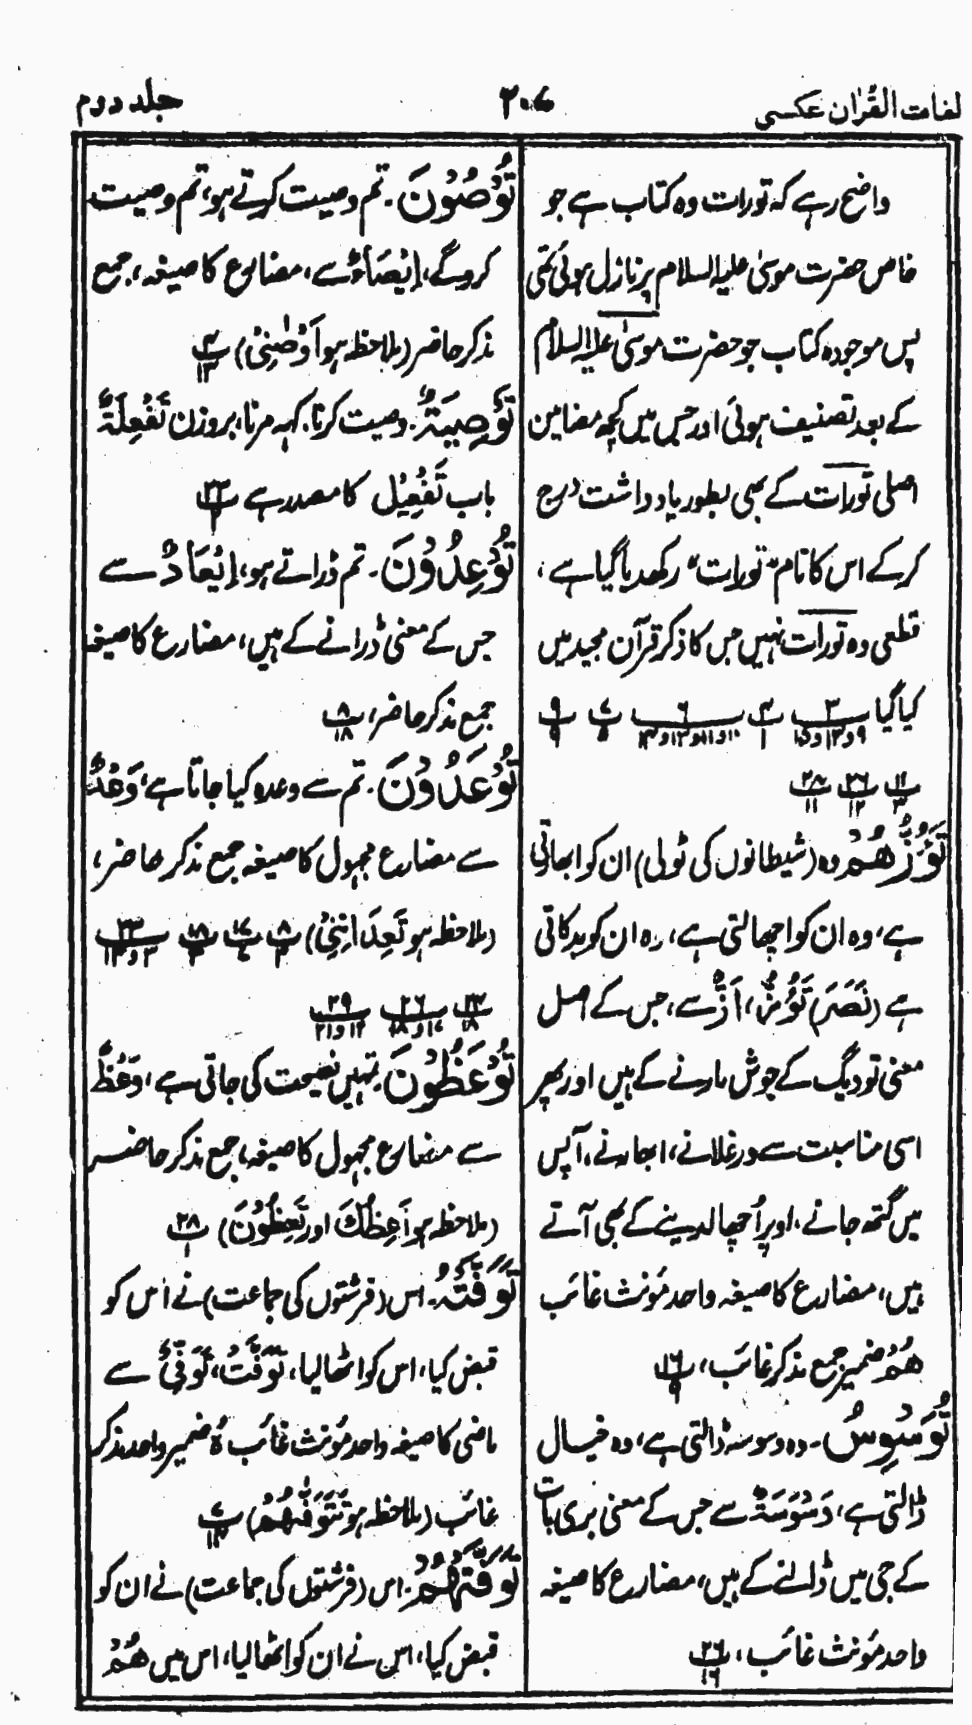 لغات القرآن عکسی
۲۰۷
جلد دوم
واضح رہے کہ تورات وہ کتاب ہے جو
خاص حضرت موسیٰ علیہ السلام پر نازل ہوئی تھی
پس موجودہ کتاب جو حضرت موسیٰ علیہ السلام
کے بعد تصنیف ہوئی اور جس میں کچھ مضامین
اصلی تورات کے بھی بطور یادداشت درج
کر کے اس کا نام "تورات" رکھدیا گیا ہے،
قطعی وہ تورات نہیں جس کا ذکر قرآن مجید میں
کیا گیا
تَؤُزُّهُمْ وہ (شیطانوں کی ٹولی) ان کو ابھارتی
ہے، وہ ان کو اچھالتی ہے، وہ ان کو بدکاتی
ہے (نَصَرَ) تَؤُزُّ، اَزٌّ سے، جس کے اصل
معنی تو دیگ کے جوش مارنے کے ہیں اور پھر
اسی مناسبت سے ورغلانے، ابھارنے، آپس
میں گتھ جانے، اور پر اُچھالدینے کے بھی آتے
ہیں، مضارع کا صیغہ واحد مؤنث غائب
هُمْ ضمیر جمع مذکر غائب، ۱۶/۹
تُوَسْوِسُ۔ وہ وسوسہ ڈالتی ہے، وہ خیال
ڈالتی ہے، وَسْوَسَۃٌ سے جس کے معنی بری بات
کے جی میں ڈالنے کے ہیں، مضارع کا صیغہ
واحد مؤنث غائب، ۲۶/۱۶
تُوْصُوْنَ۔ تم وصیت کرتے ہو، تم وصیت
کروگے، اِیْصَاءٌ سے، مضارع کا صیغہ، جمع
مذکر حاضر (ملاحظہ ہو اَوْصٰنِیْ) ۴/۱۳
تَوْصِیَۃً۔ وصیت کرنا۔ کہہ مرنا، بروزن تَفْعِلَۃٌ
باب تَفْعِیْل کا مصدر ہے ۲۳/۳
تُوْعِدُوْنَ۔ تم ڈراتے ہو، اِیْعَادٌ سے
جس کے معنی ڈرانے کے ہیں، مضارع کا صیغہ
جمع مذکر حاضر، ۸/۱۸
تُوْعَدُوْنَ۔ تم سے وعدہ کیا جاتا ہے، وَعْدٌ
سے مضارع مجہول کا صیغہ جمع مذکر حاضر،
(ملاحظہ ہو تَعِدَانِنِیْ)
تُوْعَظُوْنَ تمہیں نصیحت کی جاتی ہے، وَعْظٌ
سے مضارع مجہول کا صیغہ، جمع مذکر حاضر
(ملاحظہ ہو اَعِظُكَ اور تَعِظُوْنَ) ۲۸/۱
تَوَفَّتْہُ۔ اس (فرشتوں کی جماعت) نے اس کو
قبض کیا، اس کو اٹھالیا، تَوَفَّتْ، تَوَفِّیْ سے
ماضی کا صیغہ واحد مؤنث غائب ہُ ضمیر واحد مذکر
غائب (ملاحظہ ہو تَتَوَفّٰهُمْ)
تَوَفَّتْهُمْ۔ اس (فرشتوں کی جماعت) نے ان کو
قبض کیا، اس نے ان کو اٹھالیا، اس میں هُمْ